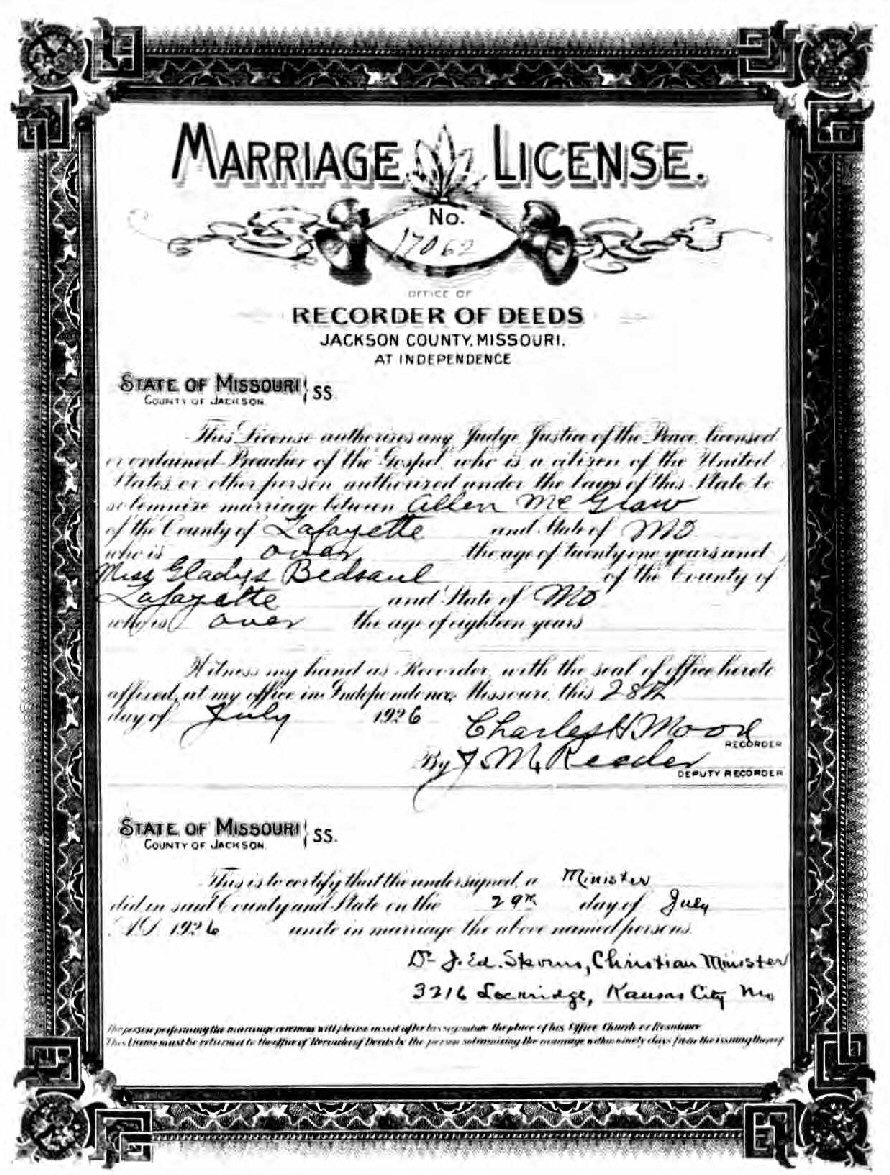 MARRIAGE LICENSE.
No.
17062
OFFICE OF
RECORDER OF DEEDS
JACKSON COUNTY, MISSOURI.
AT INDEPENDENCE
STATE OF MISSOURI
COUNTY OF JACKSON.
SS.
This License authorizes any Judge, Justice of the Peace, licensed
or ordained Preacher of the Gospel, who is a citizen of the United
States, or other person authorized under the laws of this State to
solemnize marriage between Allen McGraw
of the County of Lafayette and State of Mo
who is over the age of twenty one years and
Miss Gladys Bedsaul of the County of
Lafayette and State of Mo
who is over the age of eighteen years
Witness my hand as Recorder, with the seal of office hereto
affixed, at my office in Independence, Missouri, this 28th
day of July 1926
Charles H. Moore
RECORDER
By J. M. Reader
DEPUTY RECORDER
STATE OF MISSOURI
COUNTY OF JACKSON.
SS.
This is to certify that the undersigned, a Minister
did in said County and State on the 29th day of July
A.D. 1926 unite in marriage the above named persons.
Dr J. Ed. Stevens, Christian Minister
3216 Kansas City Mo
The person performing the marriage ceremony will please insert after his signature the place of his Office Church or Residence
This License must be returned to the office of Recorder of Deeds by the person solemnizing the marriage within ninety days from the issuing thereof